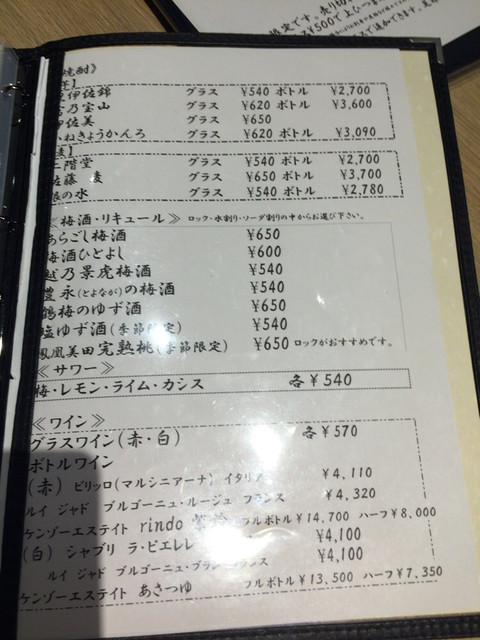 限定です。売り切
¥500で上ひつま
で追加できます。
焼酎》
伊佐錦 グラス ¥540 ボトル ¥2,700
乃宝山 グラス ¥620 ボトル ¥3,600
伊佐美 グラス ¥650
かねきょうかんろ グラス ¥620 ボトル ¥3,090
階堂 グラス ¥540 ボトル ¥2,700
佐藤 グラス ¥650 ボトル ¥3,700
の水 グラス ¥540 ボトル ¥2,780
≪梅酒・リキュール≫ ロック・水割り・ソーダ割りの中からお選び下さい。
あらごし梅酒 ¥650
梅酒ひとよし ¥600
越乃景虎梅酒 ¥540
豊永(とよなが)の梅酒 ¥540
鶴梅のゆず酒 ¥650
塩ゆず酒(季節限定) ¥540
鳳凰美田完熟桃(季節限定) ¥650 ロックがおすすめです。
≪サワー≫
梅・レモン・ライム・カシス 各¥540
≪ワイン≫
グラスワイン(赤・白) 各¥570
ボトルワイン
(赤) ピリッロ(マルシニアーナ) イタリア ¥4,110
ルイ ジャド ブルゴーニュ・ルージュ フランス ¥4,320
ケンゾーエステイト rindo 紫鈴 フルボトル¥14,700 ハーフ¥8,000
(白) シャブリ ラ・ピエレレ ¥4,100
ルイ ジャド ブルゴーニュ・ブラン フランス ¥4,100
ケンゾーエステイト あさつゆ フルボトル¥13,500 ハーフ¥7,350